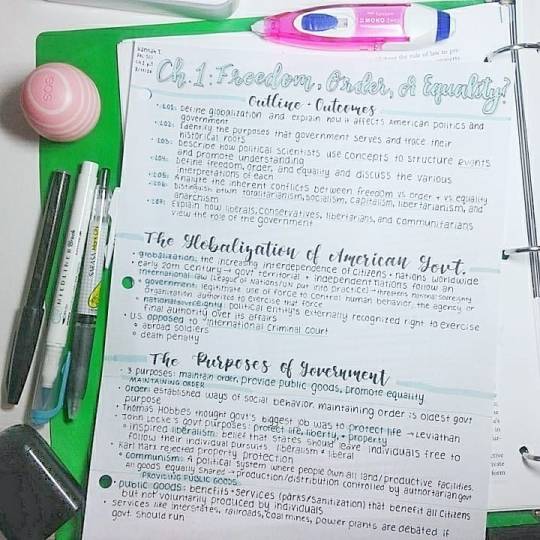 Hannah T.
Ch. 1: Freedom, Order, or Equality?
Outline + Outcomes
• LO1: Define globalization and explain how it affects American politics and
government
• LO2: Identify the purposes that government serves and trace their
historical roots
• LO3: Describe how political scientists use concepts to structure events
and promote understanding
• LO4: Define freedom, order, and equality and discuss the various
interpretations of each
• LO5: Analyze the inherent conflicts between freedom vs order + vs equality
• LO6: Distinguish btwn totalitarianism, socialism, capitalism, libertarianism, and
anarchism
• LO7: Explain how liberals, conservatives, libertarians, and communitarians
view the role of the government
The Globalization of American Govt.
• globalization: the increasing interdependence of citizens + nations worldwide
• early 20th century → govt territorial + independent nations follow an
international law (League of Nations/UN put into practice) → threatens national sovereignty
• government: legitimate use of force to control human behavior, the agency or
organization authorized to exercise that force
• national sovereignty: political entity's externally recognized right to exercise
final authority over its affairs
• U.S. opposed to "International Criminal Court
◦ abroad soldiers
◦ death penalty
The Purposes of Government
• 3 purposes: maintain order, provide public goods, promote equality
MAINTAINING ORDER
• Order: established ways of social behavior. maintaining order is oldest govt
purpose
• Thomas Hobbes thought govt's biggest job was to protect life → Leviathan
• John Locke's govt purposes: protect life, liberty, + property
◦ inspired liberalism: belief that states should leave individuals free to
follow their individual pursuits liberalism ≠ liberal
• Karl Marx rejected property protection
◦ communism: A political system where people own all land/productive facilities.
All goods equally shared → production/distribution controlled by authoritarian govt
PROVIDING PUBLIC GOODS
• public goods: benefits + services (parks/sanitization) that benefit all citizens
but not voluntarily produced by individuals
• services like interstates, railroads, coal mines, power plants are debated if
govt. should run
eos
MONO